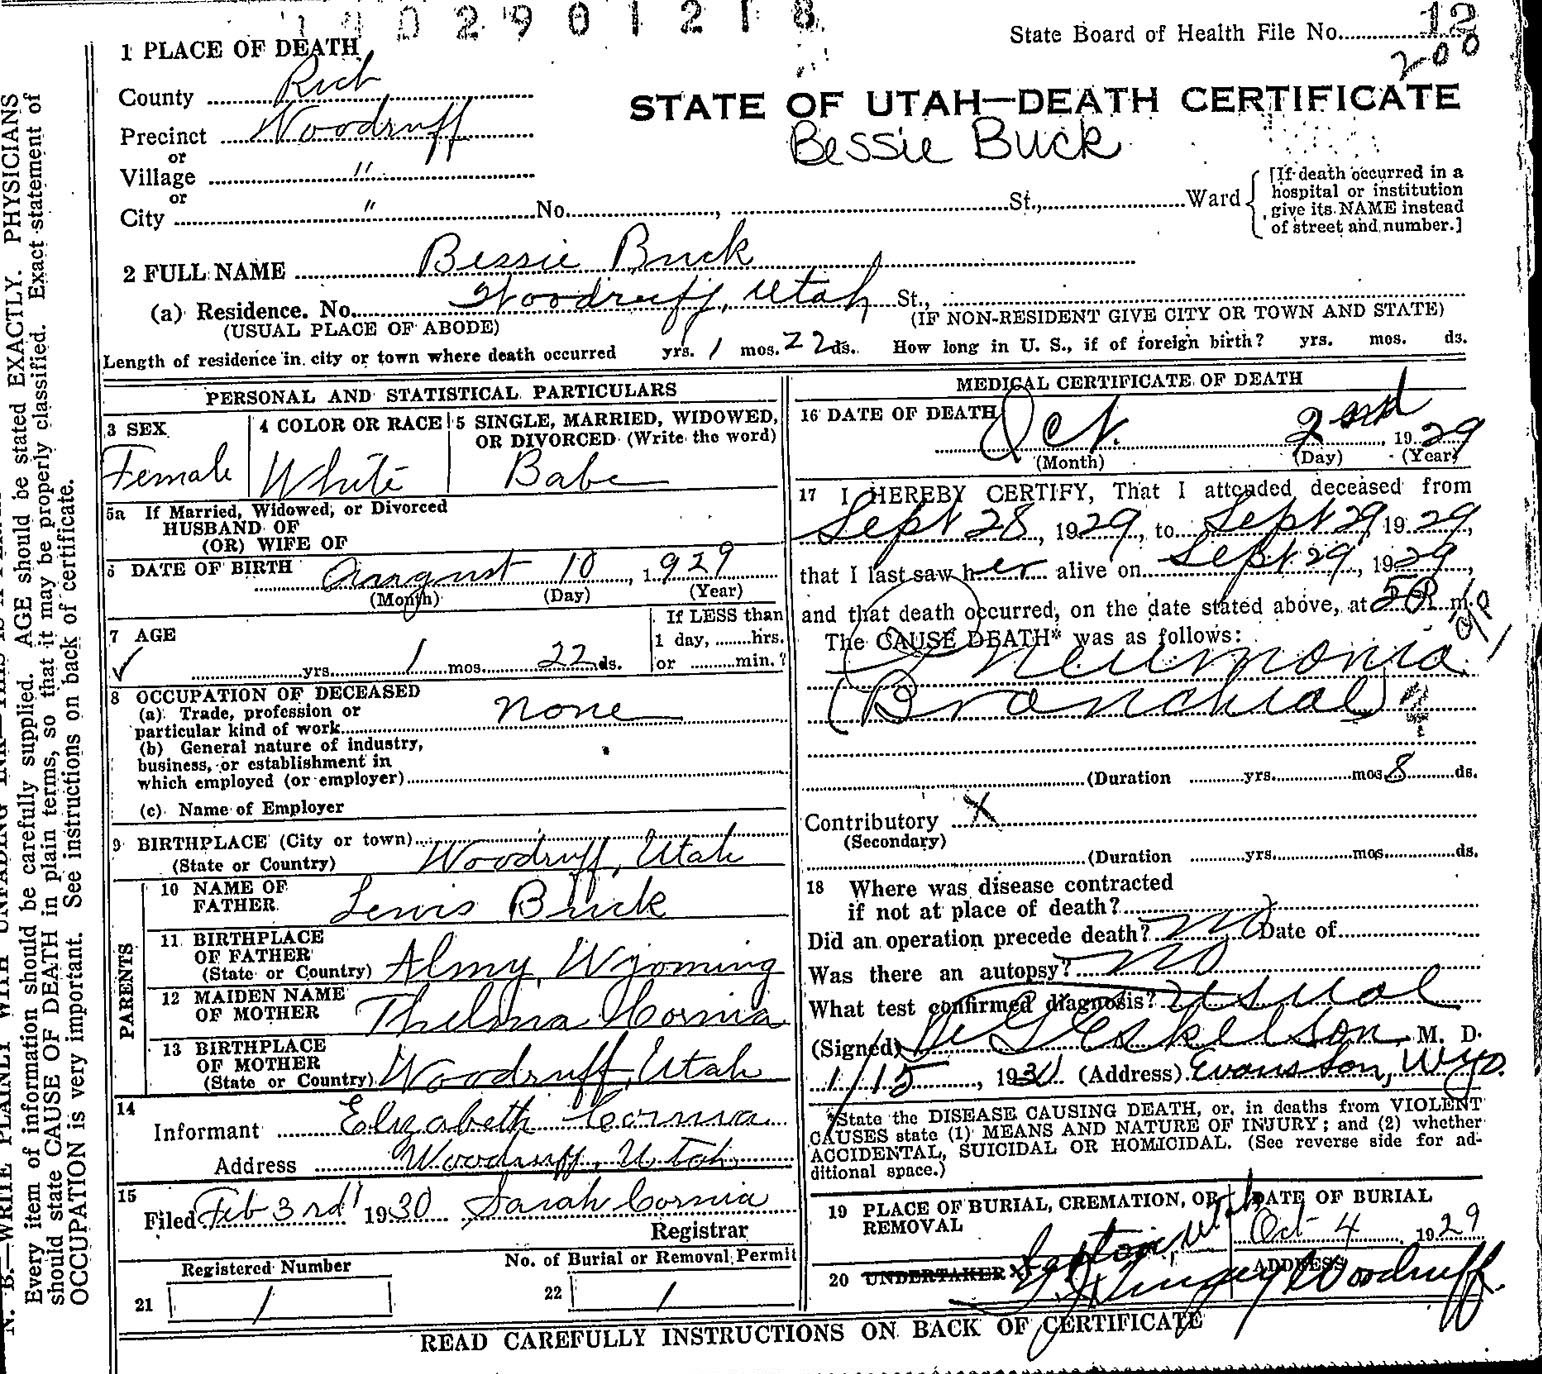 02901218
State Board of Health File No. 12
200
1 PLACE OF DEATH
County Rich
Precinct Woodruff
or
Village "
or
City " No. , St., Ward
[If death occurred in a
hospital or institution
give its NAME instead
of street and number.]
STATE OF UTAH—DEATH CERTIFICATE
Bessie Buck
2 FULL NAME Bessie Buck
(a) Residence. No. Woodruff, Utah St.,
(USUAL PLACE OF ABODE) (IF NON-RESIDENT GIVE CITY OR TOWN AND STATE)
Length of residence in city or town where death occurred yrs. 1 mos. 22 ds. How long in U. S., if of foreign birth? yrs. mos. ds.
PERSONAL AND STATISTICAL PARTICULARS
3 SEX
Female
4 COLOR OR RACE
White
5 SINGLE, MARRIED, WIDOWED,
OR DIVORCED (Write the word)
Babe
5a If Married, Widowed, or Divorced
HUSBAND OF
(OR) WIFE OF
6 DATE OF BIRTH August 10, 1929
(Month) (Day) (Year)
7 AGE
yrs. 1 mos. 22 ds.
If LESS than
1 day, hrs.
or min.?
8 OCCUPATION OF DECEASED
(a) Trade, profession or
particular kind of work none
(b) General nature of industry,
business, or establishment in
which employed (or employer)
(c) Name of Employer
9 BIRTHPLACE (City or town)
(State or Country) Woodruff, Utah
PARENTS
10 NAME OF
FATHER Lewis Buck
11 BIRTHPLACE
OF FATHER
(State or Country) Almy, Wyoming
12 MAIDEN NAME
OF MOTHER Thelma Cornia
13 BIRTHPLACE
OF MOTHER
(State or Country) Woodruff, Utah
14
Informant Elizabeth Cornia
Address Woodruff, Utah
15
Filed Feb 3rd 1930 Sarah Cornia
Registrar
Registered Number
21 1
No. of Burial or Removal Permit
22 1
MEDICAL CERTIFICATE OF DEATH
16 DATE OF DEATH Oct. 2nd, 1929
(Month) (Day) (Year)
17 I HEREBY CERTIFY, That I attended deceased from
Sept 28, 1929, to Sept 29, 1929,
that I last saw her alive on Sept 29, 1929,
and that death occurred, on the date stated above, at m.
The CAUSE DEATH* was as follows:
Pneumonia
(Bronchial)
(Duration yrs. mos. 8 ds.
Contributory X
(Secondary)
(Duration yrs. mos. ds.
18 Where was disease contracted
if not at place of death?
Did an operation precede death? no Date of
Was there an autopsy? no
What test confirmed diagnosis? usual
(Signed) Eskelson, M. D.
1/15, 1930 (Address) Evanston, Wyo.
*State the DISEASE CAUSING DEATH, or, in deaths from VIOLENT
CAUSES state (1) MEANS AND NATURE OF INJURY; and (2) whether
ACCIDENTAL, SUICIDAL OR HOMICIDAL. (See reverse side for ad-
ditional space.)
19 PLACE OF BURIAL, CREMATION, OR
REMOVAL
Utah
DATE OF BURIAL
Oct 4 1929
20 UNDERTAKER
ADDRESS
Woodruff
READ CAREFULLY INSTRUCTIONS ON BACK OF CERTIFICATE
Every item of information should be carefully supplied. AGE should be stated EXACTLY. PHYSICIANS
should state CAUSE OF DEATH in plain terms, so that it may be properly classified. Exact statement of
OCCUPATION is very important. See instructions on back of certificate.